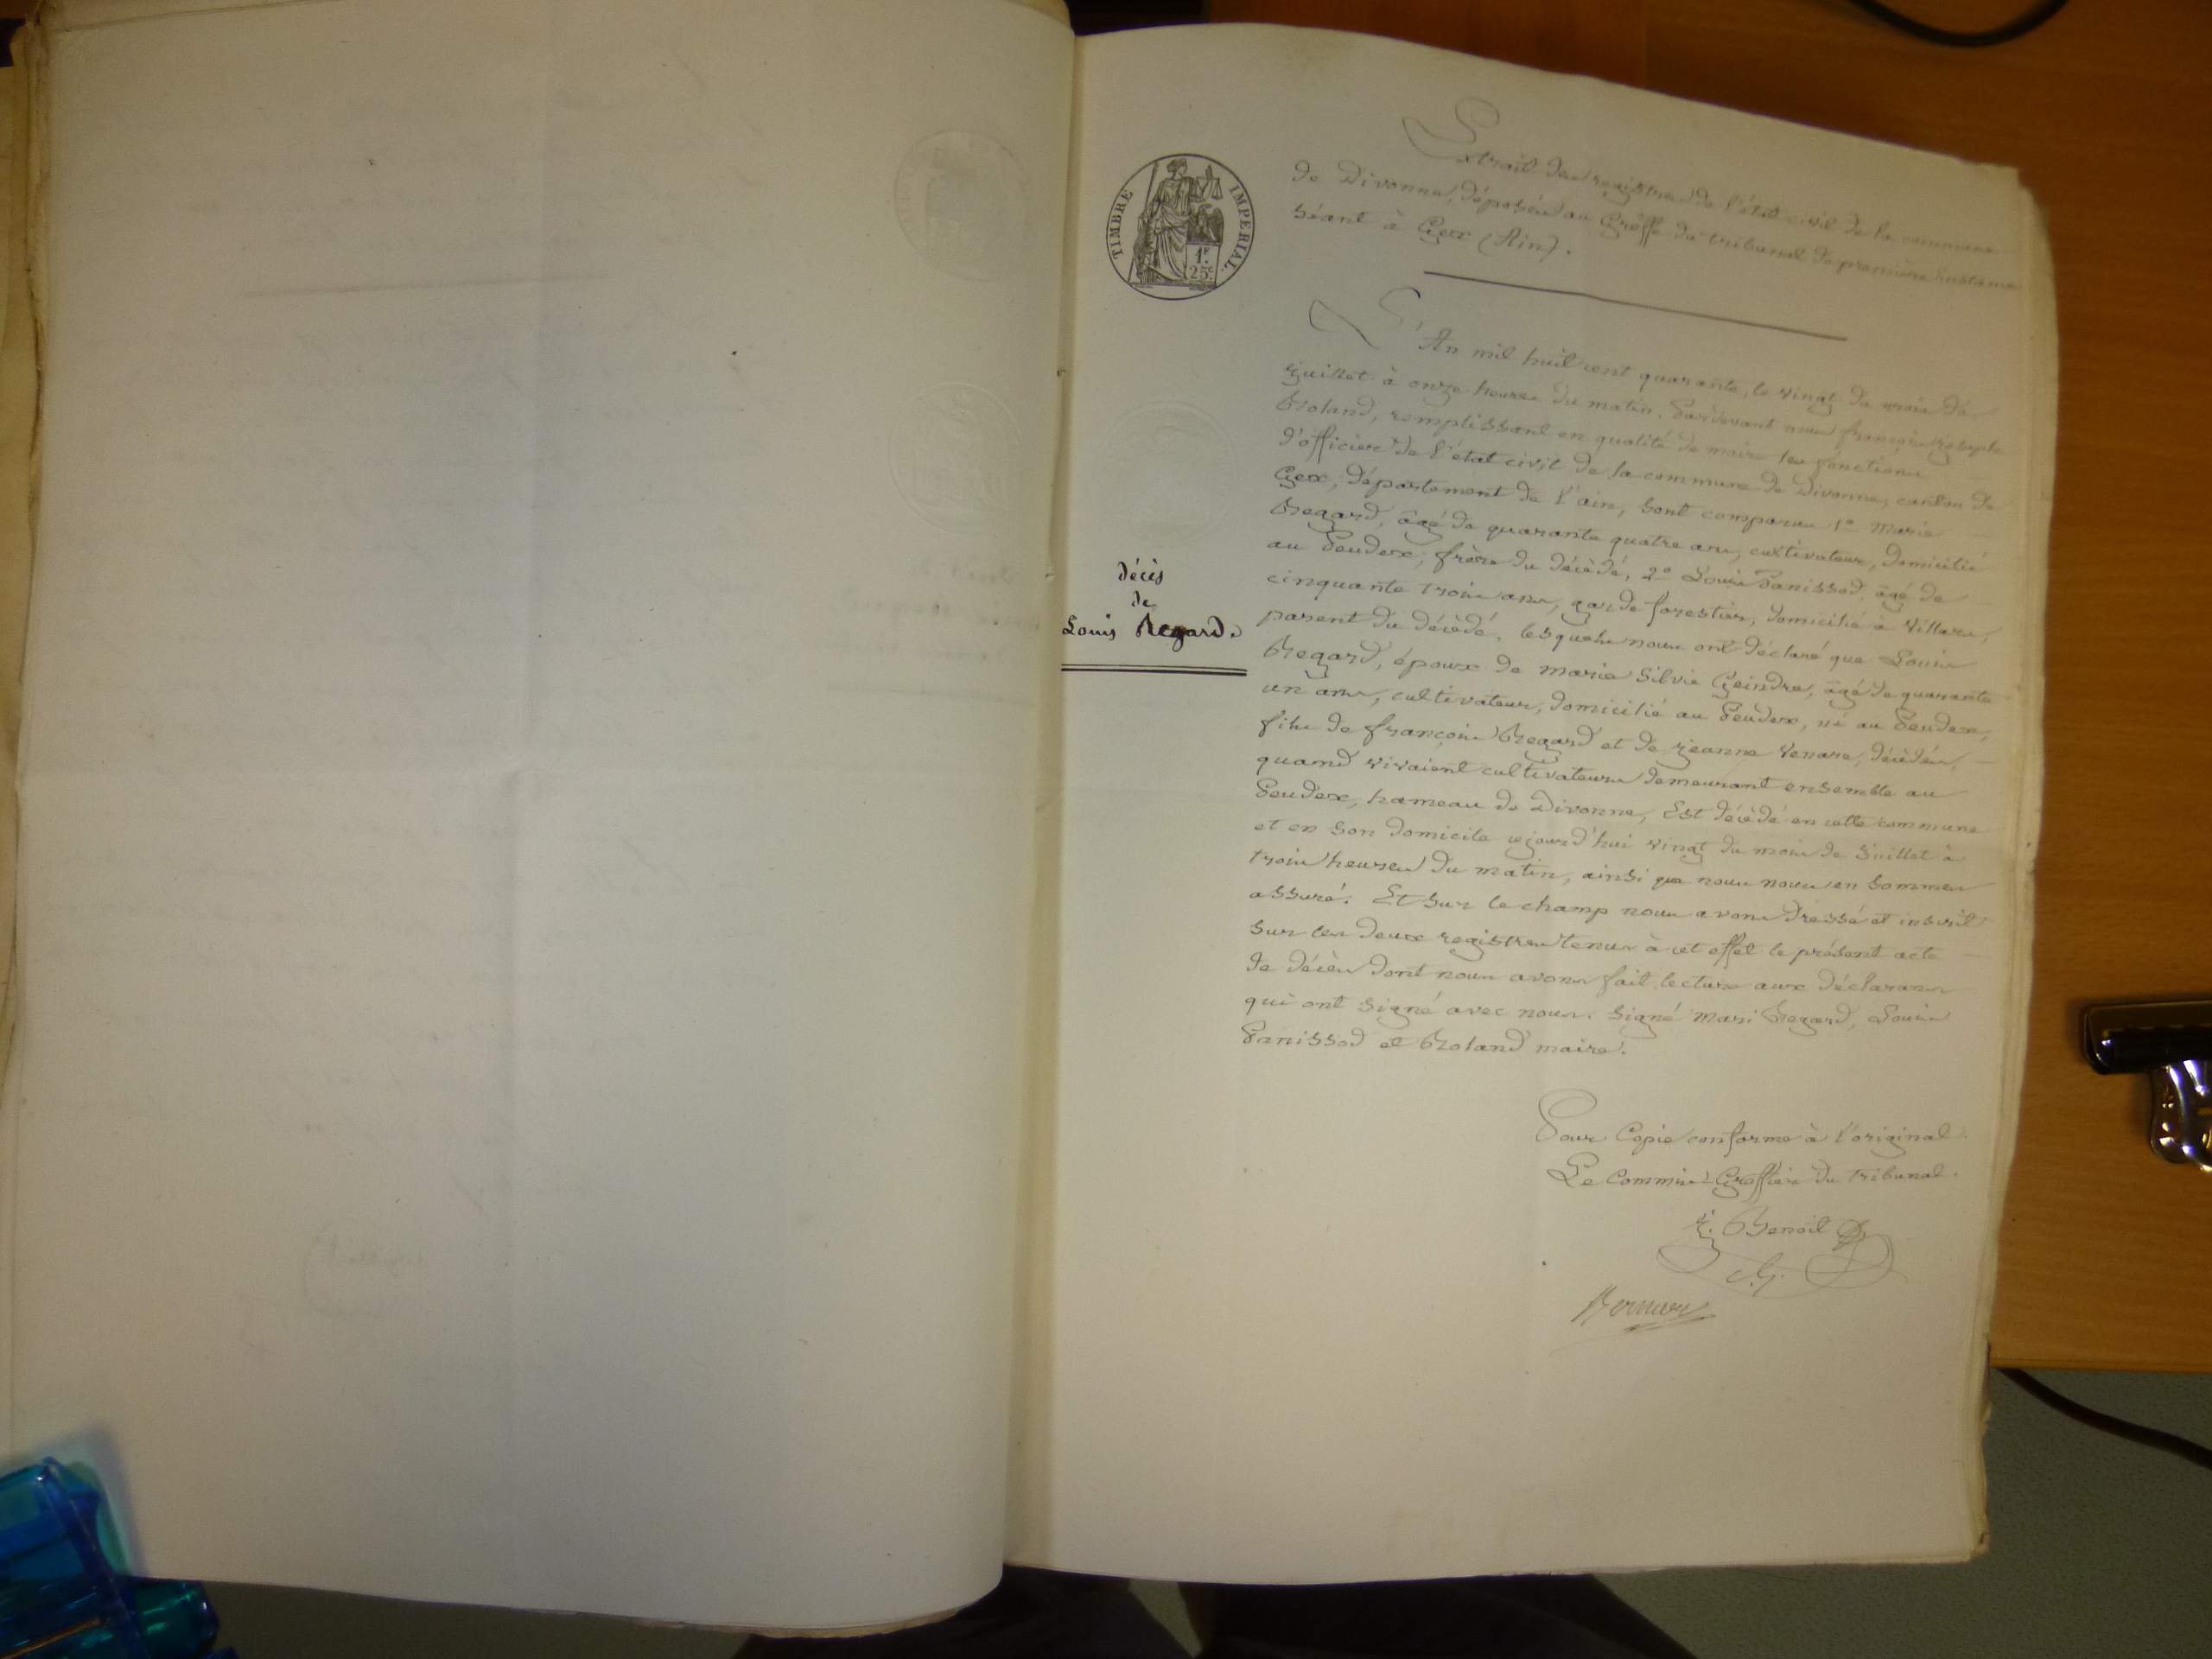 TIMBRE IMPERIAL
1F.
25c.
Extrait des registres de l'état civil de la commune
de Divonne, déposés au Greffe du tribunal de première instance
séant à Gex (Ain).
L'An mil huit cent quarante, le vingt du mois de
Juillet à onze heures du matin. Pardevant nous françois Joseph
Roland, remplissant en qualité de maire les fonctions
d'officier de l'état civil de la commune de Divonne, canton de
Gex, département de l'ain, sont comparus 1º Marie
Regard, âgé de quarante quatre ans, cultivateur, domicilié
au Pendex, frère du décédé, 2º Louis Panissod, âgé de
cinquante trois ans, garde forestier, domicilié à Villars,
parent du décédé, lesquels nous ont déclaré que Louis
Regard, époux de Marie Silvie Geindre, âgé de quarante
un ans, cultivateur, domicilié au Pendex, né au Pendex,
fils de françois Regard et de jeanne Venare, décédés,
quand vivaient cultivateurs demeurant ensemble au
Pendex, hameau de Divonne, Est décédé en cette commune
et en son domicile cejourd'hui vingt du mois de Juillet à
trois heures du matin, ainsi que nous nous en sommes
assuré. Et sur le champ nous avons dressé et inscrit
sur les deux registres tenus à cet effet le présent acte
de décès dont nous avons fait lecture aux déclarans
qui ont signé avec nous. Signé Mari Regard, Louis
Panissod et Roland maire.
décès
de
Louis Regard.
Pour Copie conforme à l'original.
Le Commis-Greffier du tribunal.
Benoit